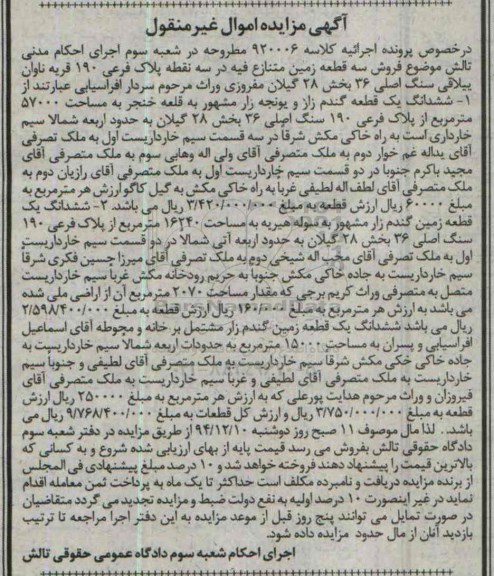 آگهی مزایده اموال غیرمنقول
درخصوص پرونده اجرائیه کلاسه ۹۲۰۰۰۶ مطروحه در شعبه سوم اجرای احکام مدنی
تالش موضوع فروش سه قطعه زمین متنازع فیه در سه نقطه پلاک فرعی ۱۹۰ قریه ناوان
ییلاقی سنگ اصلی ۳۶ بخش ۲۸ گیلان مفروزی وراث مرحوم سردار افراسیابی عبارتند از
۱- ششدانگ یک قطعه گندم زار و یونجه زار مشهور به قلعه خنجر به مساحت ۵۷۰۰۰
مترمربع از پلاک فرعی ۱۹۰ سنگ اصلی ۳۶ بخش ۲۸ گیلان به حدود اربعه شمالا سیم
خارداری است به راه خاکی مکش شرقاً در سه قسمت سیم خارداریست اول به ملک تصرفی
آقای یداله غم خوار دوم به ملک متصرفی آقای ولی اله وهابی سوم به ملک متصرفی آقای
مجید باکرم جنوبا در دو قسمت سیم خارداریست اول به ملک متصرفی آقای رازیان دوم به
ملک متصرفی آقای لطف اله لطیفی غرباً به راه خاکی مکش به گیل کاگو ارزش هر مترمربع به
مبلغ ۶۰۰۰۰ ریال ارزش قطعه به مبلغ ۳/۴۲۰/۰۰۰/۰۰۰ ریال می باشد. ۲- ششدانگ یک
قطعه زمین گندم زار مشهور به سوله هیریه به مساحت ۱۶۲۴۰ مترمربع از پلاک فرعی ۱۹۰
سنگ اصلی ۳۶ بخش ۲۸ گیلان به حدود اربعه آتی شمالا در دو قسمت سیم خارداریست
اول به ملک تصرفی آقای محب اله شیخی دوم به ملک تصرفی آقای میرزا حسین فکری شرقاً
سیم خارداریست به جاده خاکی مکش جنوبا به حریم رودخانه مکش غرباً سیم خارداریست
متصل به متصرفی وراث کریم برجی که مقدار مساحت ۲۰۷۰ مترمربع آن از اراضی ملی شده
می باشد به ارزش هر مترمربع به مبلغ ۱۶۰/۰۰۰ ریال ارزش قطعه به مبلغ ۲/۵۹۸/۴۰۰/۰۰۰
ریال می باشد ششدانگ یک قطعه زمین گندم زار مشتمل بر خانه و محوطه آقای اسماعیل
افراسیابی و پسران به مساحت ۱۵۰۰۰ مترمربع به حدودات اربعه شمالا سیم خارداریست به
جاده خاکی خکی مکش شرقاً سیم خارداریست به ملک تصرفی آقای لطیفی و جنوبا سیم
خارداریست به ملک متصرفی آقای لطیفی و غرباً سیم خارداریست به ملک متصرفی آقای
فیروزان و وراث مرحوم هدایت پورعلی که به ارزش هر مترمربع به مبلغ ۲۵۰۰۰۰ ریال ارزش
قطعه به مبلغ ۳/۷۵۰/۰۰۰/۰۰۰ ریال و ارزش کل قطعات به مبلغ ۹/۷۶۸/۴۰۰/۰۰۰ ریال می
باشد. لذا مال موصوف ۱۱ صبح روز دوشنبه ۹۴/۱۲/۱۰ از طریق مزایده در دفتر شعبه سوم
دادگاه حقوقی تالش بفروش می رسد قیمت پایه از بهای ارزیابی شده شروع و به کسانی که
بالاترین قیمت را پیشنهاد دهند فروخته خواهد شد و ۱۰ درصد مبلغ پیشنهادی فی المجلس
از برنده مزایده دریافت و نامبرده مکلف است حداکثر تا یک ماه به پرداخت ثمن معامله اقدام
نماید در غیر اینصورت ۱۰ درصد اولیه به نفع دولت ضبط و مزایده تجدید می گردد متقاضیان
در صورت تمایل می توانند پنج روز قبل از موعد مزایده به این دفتر اجرا مراجعه تا ترتیب
بازدید آنان از مال حدود مزایده داده شود.
اجرای احکام شعبه سوم دادگاه عمومی حقوقی تالش